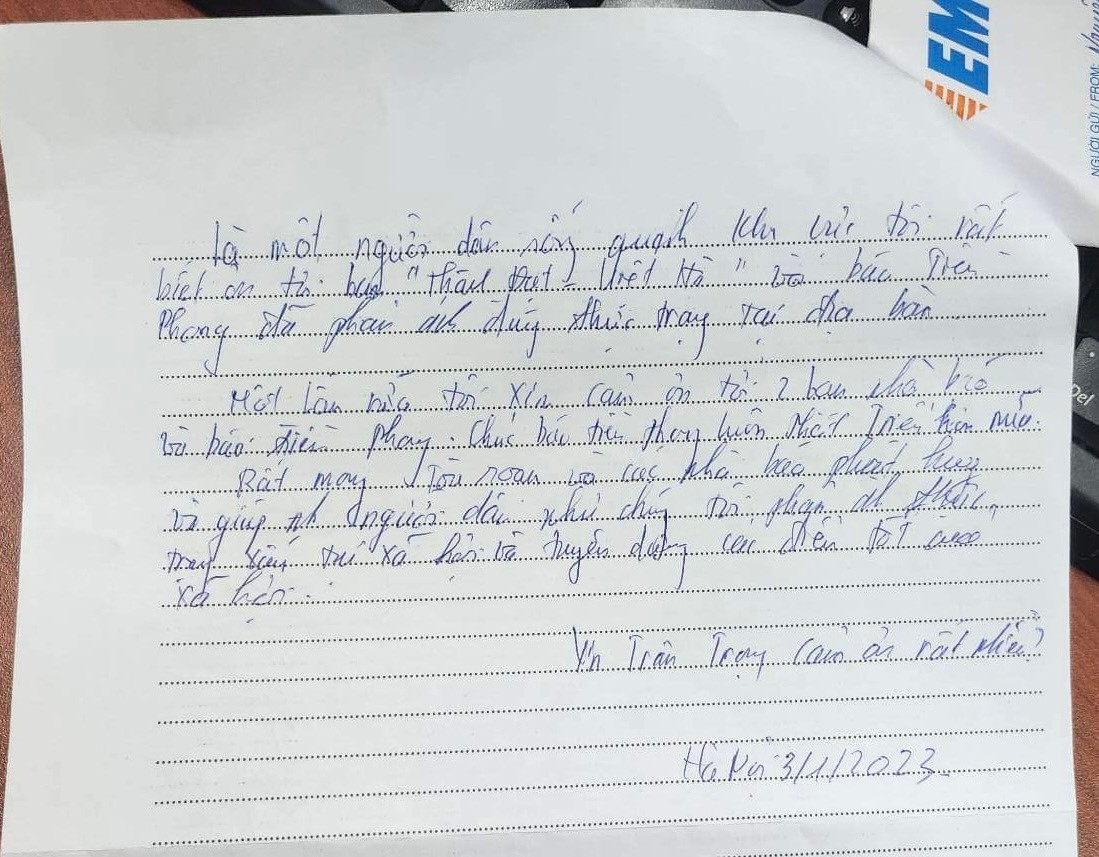 EM
NGƯỜI GỬI / FROM:
Del
Là một người dân sống quanh khu vực tôi rất
biết ơn tới bạn "Thành Đạt - Việt Hà" và báo Tiền
Phong đã phản ánh đúng thực trạng tại địa bàn
Một lần nữa tôi xin cảm ơn tới 2 bạn nhà báo
và báo tiền phong. Chúc báo tiền phong luôn phát triển hơn nữa.
Rất mong Tòa soạn và các nhà báo phát huy
và giúp người dân như chúng tôi phản ánh thực
trạng xấu xã hội và tuyên dương các điều tốt
xã hội.
Xin Trân Trọng cảm ơn rất nhiều?
Hà Nội 3/1/2023